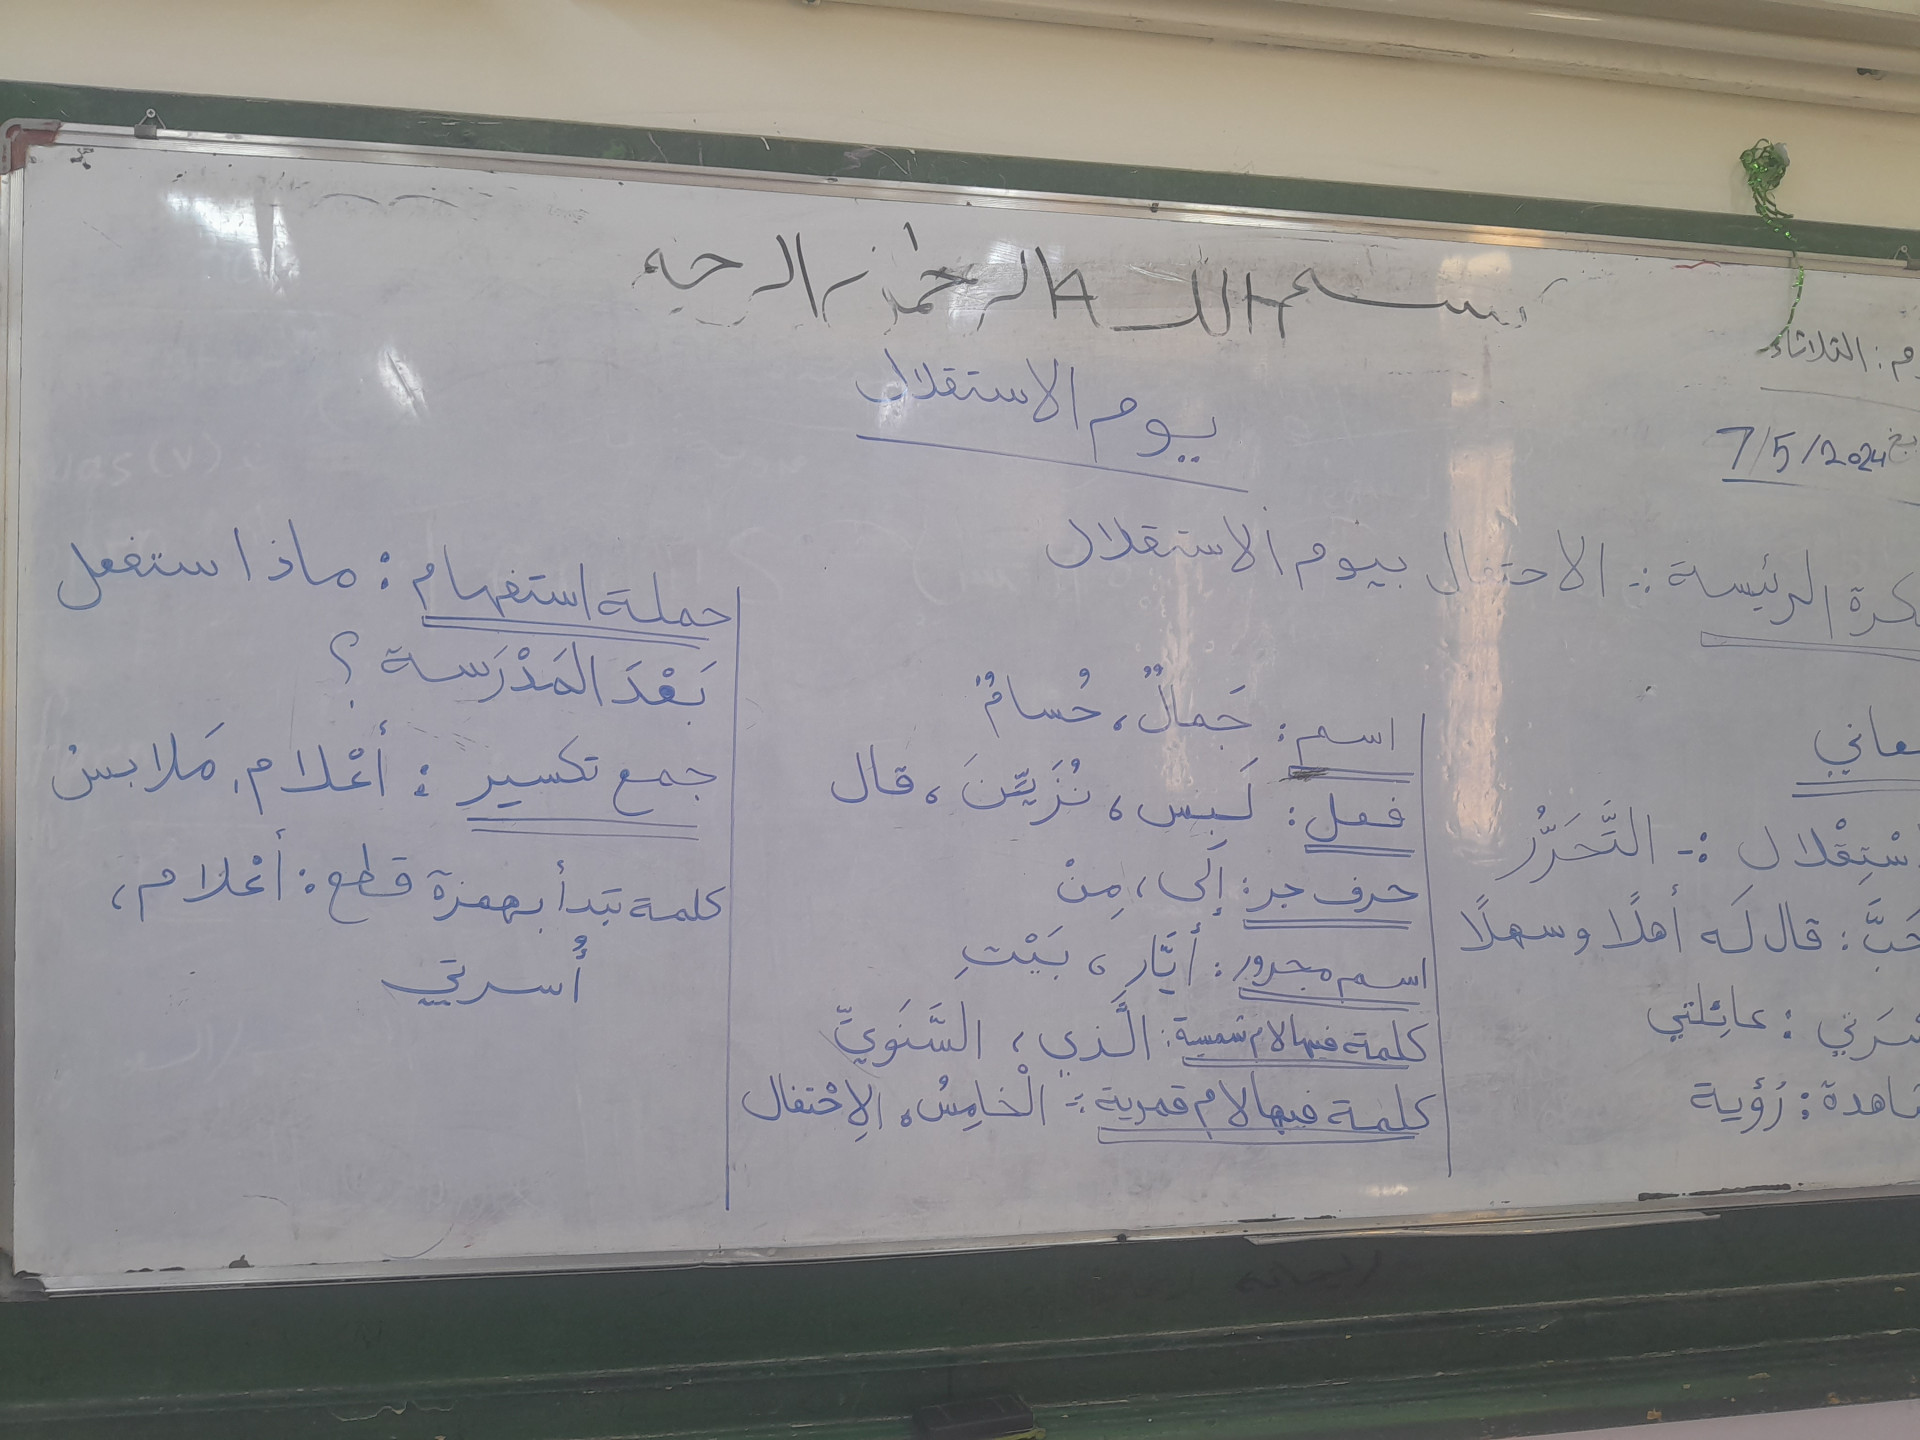 بسم الله الرحمن الرحيم
يوم الاستقلال
وم : الثلاثاء
7/5/2024
كرة الرئيسة :- الاحتفال بيوم الاستقلال
عاني
سْتِقْلال :- التَّحَرُّر
حَبَّ : قال لَه أهلًا وسهلًا
سْرَتي : عائِلتي
اهدة : رُؤية
اسم : جَمالٌ ، حُسامٌ
فعل : لَبِس ، نُزَيِّنَ ، قال
حرف جر : إِلى ، مِنْ
اسم مجرور : أَيَّار ، بَيْتِ
كلمة فيها لام شمسية : الَّذي ، السَّنَوِيِّ
كلمة فيها لام قمرية :- الْخامِسُ ، الِاحْتفال
جملة استفهام : ماذا ستفعل
بَعْدَ المَدْرَسة ؟
جمع تكسير : أَعْلام ، مَلابسُ
كلمة تبدأ بهمزة قطع : أَعْلام ،
أُسرتي